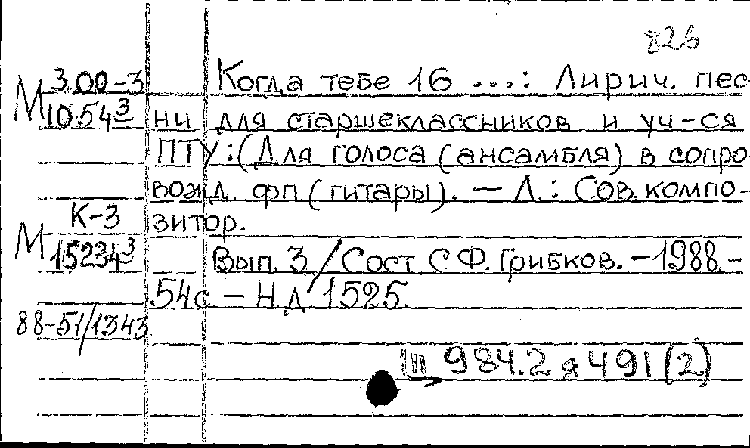 826
3.00-3 Когда тебе 16 ...: Лирич. пес-
М 1054³ ни для старшеклассников и уч-ся
ПТУ: (Для голоса (ансамбля) в сопро-
вожд. фп (гитары). — Л.: Сов. компо-
К-3 зитор.
М 15234³ Вып. 3 / Сост. С.Ф. Грибков. - 1988. -
54с. — Н.Д. 1525.
88-51/1343
Ш 984.2 я 491 (2)